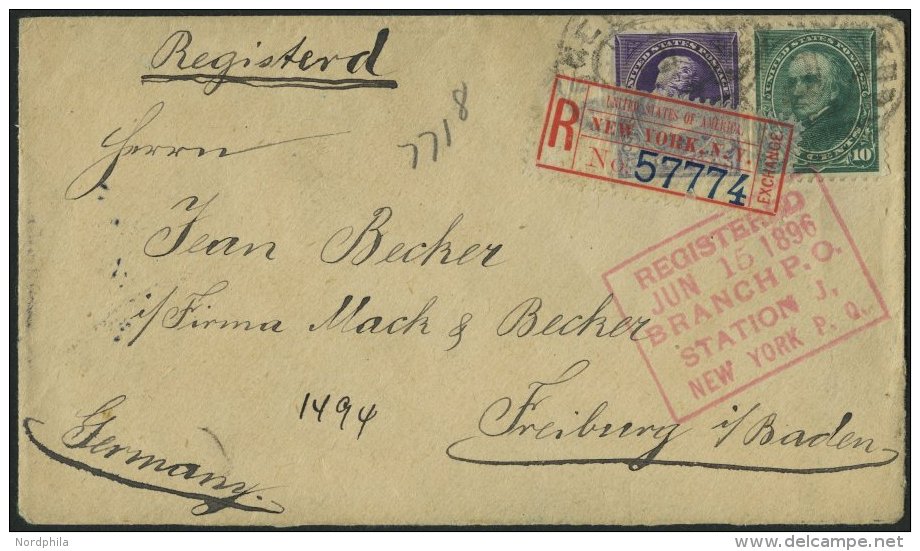 Registerd
7718
UNITED STATES POSTAGE
UNITED STATES POSTAGE
CENTS 10
R
UNITED STATES OF AMERICA.
NEW YORK, N.Y.
No. 57774
EXCHANGE
Herrn
Jean Becker
i/Firma Mack & Becker
1494
Freiburg i/Baden
Germany.
REGISTERED
JUN 15 1896
BRANCH P. O.
STATION J,
NEW YORK P. O.
Nordphila
delcampe.net